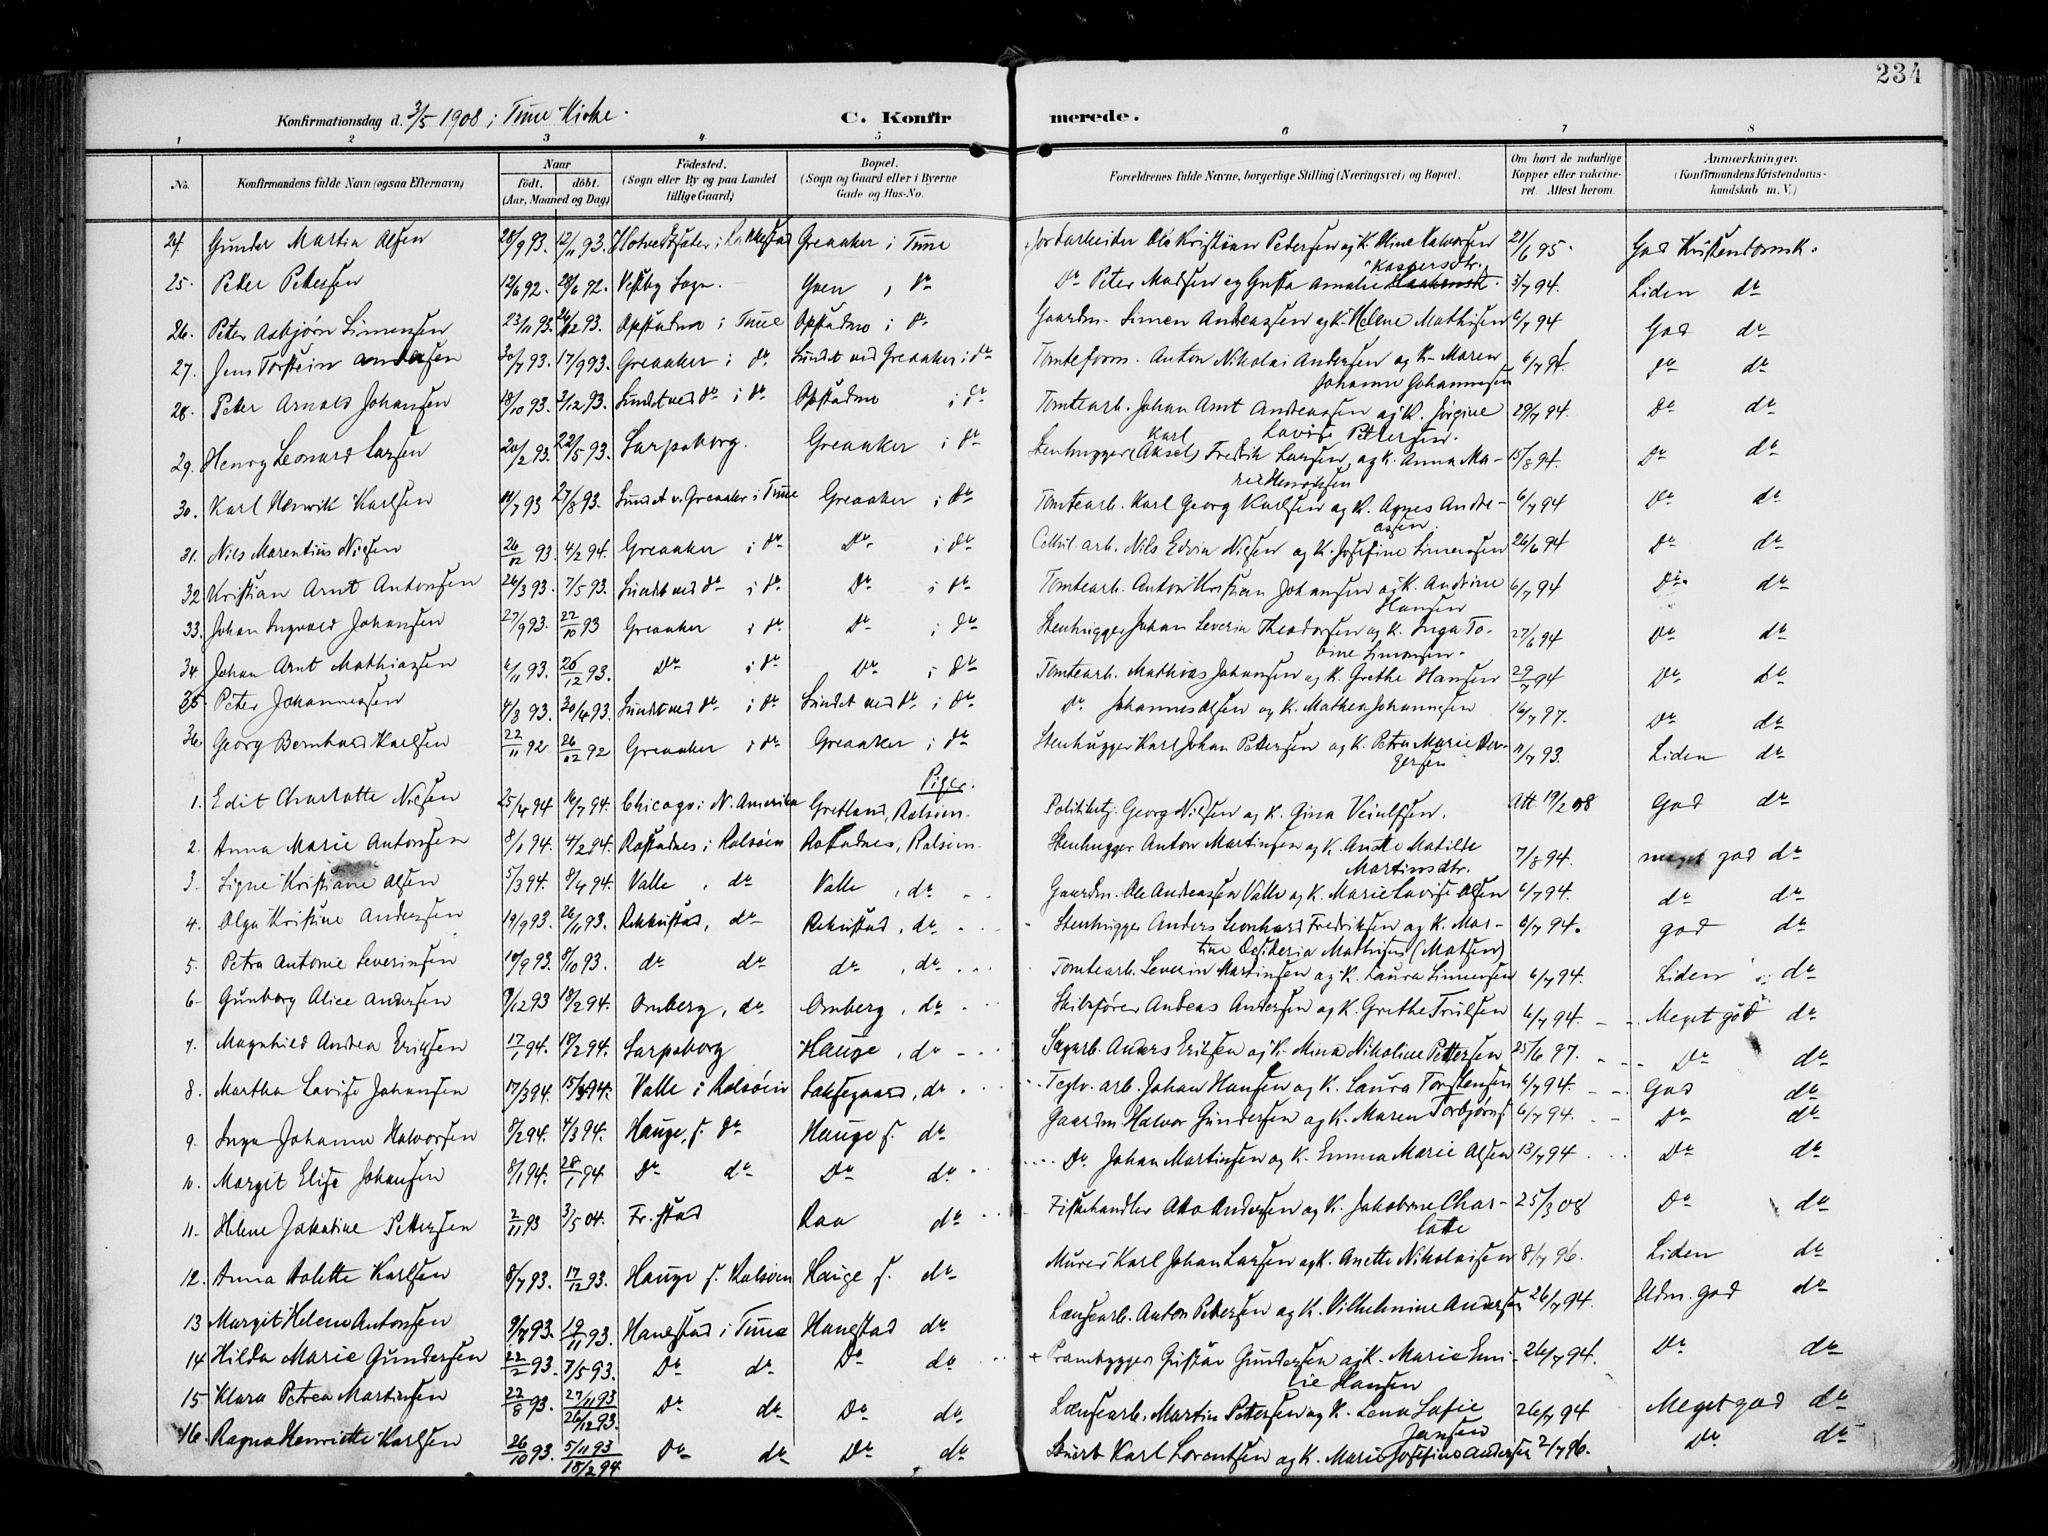 234
Konfirmationsdag d. 3/5 1908 i Tune Kirke.
C. Konfirmerede.
1 2 3 4 5 6 7 8
No.
Konfirmandens fulde Navn (ogsaa Efternavn)
Naar
födt. döbt.
(Aar, Maaned og Dag)
Födested.
(Sogn eller By og paa Landet tillige Gaard)
Bopæl.
(Sogn og Gaard eller i Byerne Gade og Hus-No.
Forældrenes fulde Navne, borgerlige Stilling (Næringsvei) og Bopæl.
Om havt de naturlige Kopper eller vakcineret. Attest herom.
Anmærkninger.
(Konfirmandens Kristendomskundskab m. V.)
24. Gunder Martin Olsen 28/9 93. 12/11 93. i Rakkestad Greaaker i Tune Jordarbeider Ole Kristian Petersen og K. Oline Halvorsen 21/6 95. God Kristendomsk.
25. Peter Petersen 12/6 92. 28/6 92. Vestby Sogn. Yven , do Do Peter Madsen og Gusta Amalie Kaspersdtr. 3/7 94. Liden do
26. Peter Asbjørn Simensen 23/11 93. 26/12 93. Opstadmo i Tune Opstadmo i do Gaardm. Simen Andreassen og K. Helene Mathisen 6/7 94 God do
27. Jens Torstein Andersen 30/7 93. 17/9 93. Greaaker i do Sundet ved Greaaker i do Tomteform. Anton Nikolai Andersen og K. Maren Johanne Johannesen 6/7 94. do do
28. Peter Arnold Johansen 18/10 93. 3/12 93. Sundet ved do i do Opstadmo i do Tomtearb. Johan Arnt Andreassen og K. Jørgine Lovise Pettersen. 29/7 94. Do do
29. Henry Leonard Larsen 20/2 93. 22/5 93. Sarpsborg. Greaaker i do Stenhugger (Aksel) Karl Fredrik Larsen og K. Anna Marie Henriksen 15/8 94. Do do
30. Karl Henrik Karlsen 11/7 93 27/8 93. Sundet v. Greaaker i Tune Greaaker i do Tomtearb. Karl Georg Karlsen og K. Agnes Andreassen 6/7 94 Do do
31. Nils Marentius Nilsen 26/12 93. 4/2 94. Greaaker i do Do i do Cellul. arb. Nils Edvin Nilsen og K. Josefine Simensen 26/6 94 Do do
32 Kristian Arnt Antonsen 26/3 93. 7/5 93. Sundet ved do i do Do i do Tomtearb. Anton Kristian Johansen og K. Andrine Hansen 6/7 94 Do do
33. Johan Ingvald Johansen 27/9 93. 22/10 93 Greaaker i do Do i do Stenhugger Johan Severin Theodorsen og K. Inga Tobine Simonsen. 27/6 94 Do do
34. Johan Arnt Mathiassen 4/11 93. 26/12 93. Do i do Do i do Tomtearb. Mathias Johansen og K. Grethe Hansen 29/7 94 Do do
35. Peter Johannessen 4/3 93. 30/4 93. Sundet ved do i do Sundet ved do i do Do Johannes Olsen og K. Mathea Johannesen 16/7 97. Do do
36. Georg Bernhard Karlsen 22/11 92 26/12 92 Greaaker i do Greaaker i do Stenhugger Karl Johan Pettersen og K. Petra Marie Børgersen 11/7 93. Liden do
Piger.
1. Edit Charlotte Nilsen 25/4 94 16/7 94. Chicago i N. Amerika Gretland, Rolsöen. Politibetj. Georg Nilsen og K. Gina Veiulfsen. Att. 19/2 08 God do
2. Anna Marie Antonsen 8/1 94. 4/2 94. Rostadnes i Rolsöen Rostadnes, Rolsöen. Stenhugger Anton Martinsen og K. Anette Matilde Martinsdtr. 7/8 94. meget god do
3. Signe Kristiane Olsen 5/3 94. 8/4 94. Valle , do Valle , do Gaardm. Ole Andreassen Valle og K. Marie Lovise Olsen 6/7 94. do do
4. Olga Kristine Andersen 19/9 93. 26/11 93. Rekkustad, do Rekustad, do Stenhugger Anders Leonhard Fredriksen og K. Martine Mathisen (Matsen) 6/7 94. god do
5. Petra Antonie Severinsen 10/9 93. 8/10 93. do do do , do Tomtearb. Severin Martinsen og K. Laura Simensen 6/7 94. Liden do
6. Gunborg Alice Andersen 9/12 93 18/2 94. Omberg, do Omberg, do Skibsfører Andreas Andersen og K. Grethe Trulsen 6/7 94. Meget god do
7. Magnhild Andrea Eriksen 17/1 94. 18/2 94. Sarpsborg Hauge , do Sagarb. Anders Eriksen og K. Mina Nikoline Pettersen 25/6 97. Do do
8. Martha Lovise Johansen 17/3 94. 15/4 94. Valle i Rolsöen Laksegaard, do Teglv. arb. Johan Hansen og K. Laura Torstensen 6/7 94. God do
9. Inga Johanne Halvorsen 8/2 94. 4/3 94. Hauge, s. do Hauge s. do Gaardm. Halvor Gundersen og K. Maren Torbjørns 6/7 94. Do do
10. Margit Elise Johansen 8/1 94. 28/1 94 Do do Do do Do Johan Martinsen og K. Emma Marie Olsen 13/7 94 Do do
11. Helene Jakobine Pettersen 2/11 93 3/5 04. Fr.stad Raa do Fiskehandler Otto Andersen og K. Jakobine Charlotte 25/3 08 Do do
12. Anna Aolette Karlsen 8/7 93. 17/12 93. Hauge s. Rolsöen Hauge s. do Murer Karl Johan Larsen og K. Anette Nikolaisen 8/7 96. Liden do
13 Margit Helene Antonsen 9/7 93. 19/11 93. Hanestad i Tune Hanestad do Lænsearb. Anton Petersen og K. Vilhelmine Andersen 26/7 94. Udm. god do
14 Hilda Marie Gundersen 22/2 93. 7/5 93. Do do Do do Prambygger Gustav Gundersen og K. Marie Emilie Hansen 26/7 94. Do do
15 Klara Petrea Martinsen 22/8 93. 27/11 93 26/12 93. Do do Do do Lænsearb. Martin Pettersen og K. Lena Sofie Jansen 26/7 94 Meget god do
16. Ragna Henriette Karlsen 26/10 93. 5/11 93 18/2 94 Do do Do do Karl Lorentsen og K. Marie Josefine Andersen 2/7 96. Do do